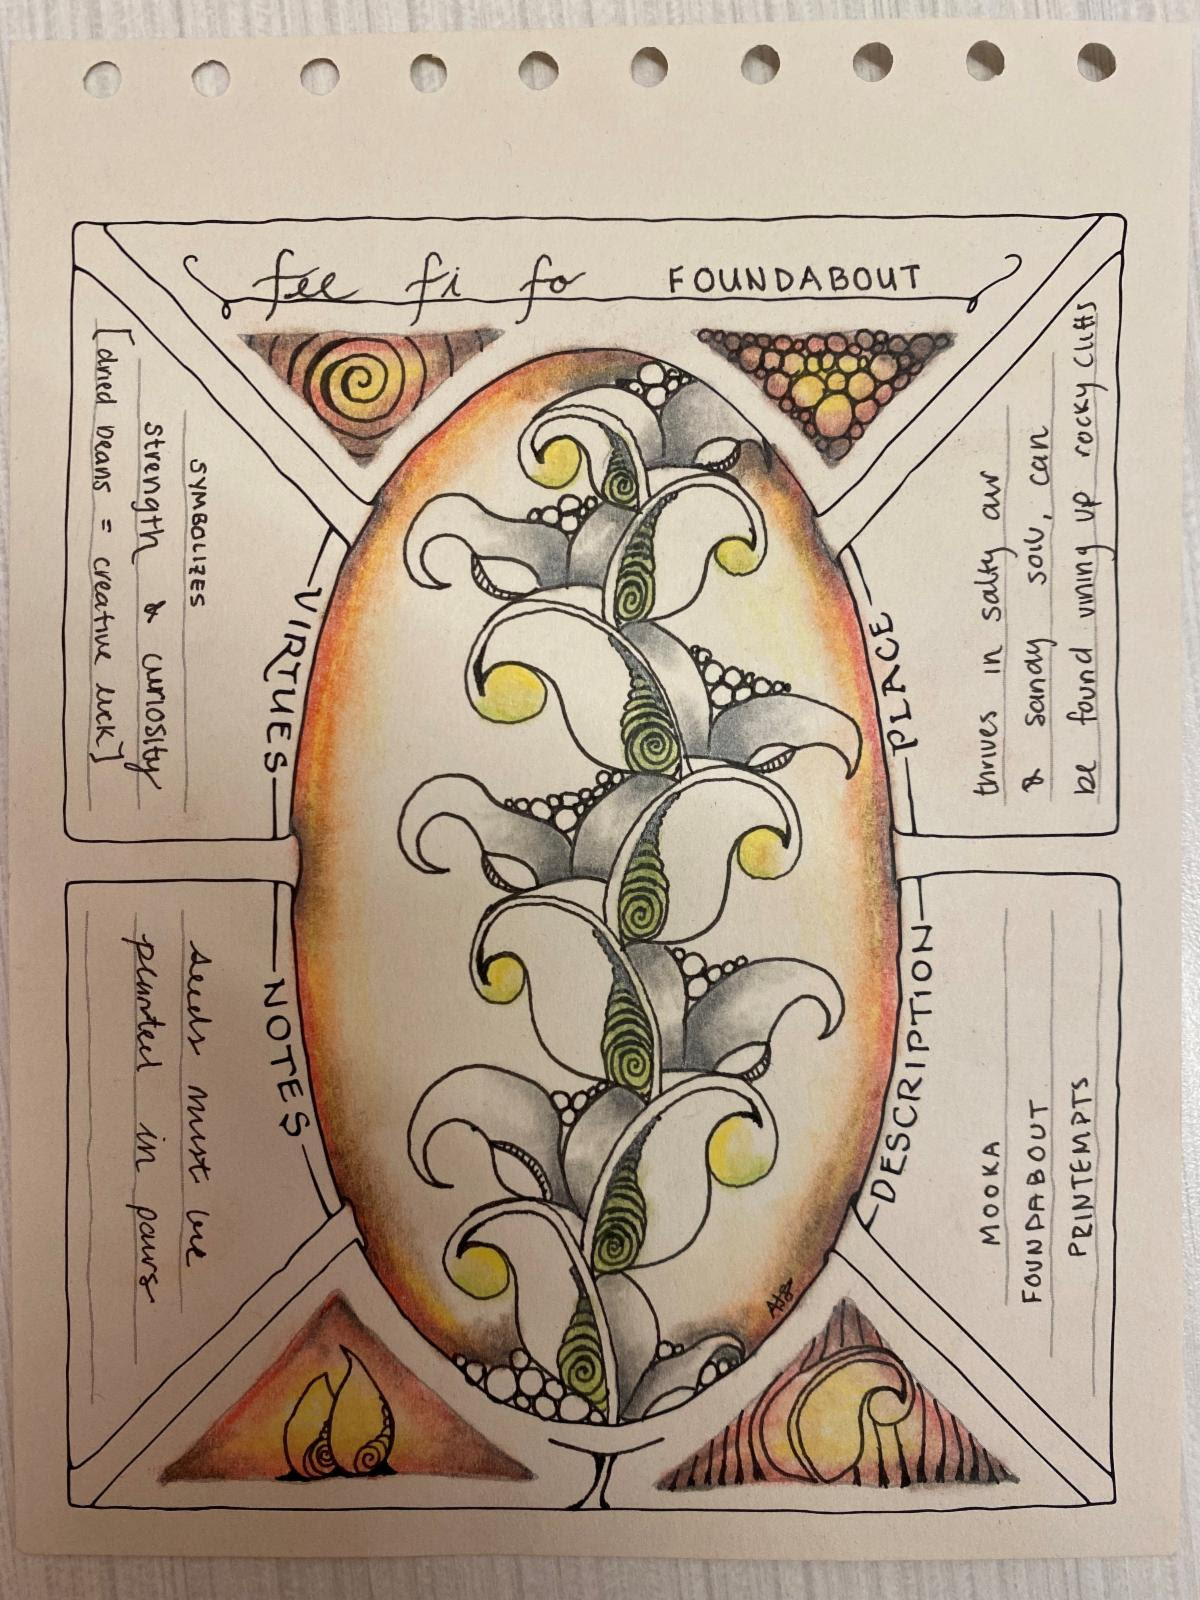 fee fi fo FOUNDABOUT
VIRTUES
SYMBOLIZES
strength & curiosity
[dried beans = creative luck]
PLACE
thrives in salty air
& sandy soil, can
be found vining up rocky cliffs
NOTES
seeds must be
planted in pairs
DESCRIPTION
MOOKA
FOUNDABOUT
PRINTEMPTS